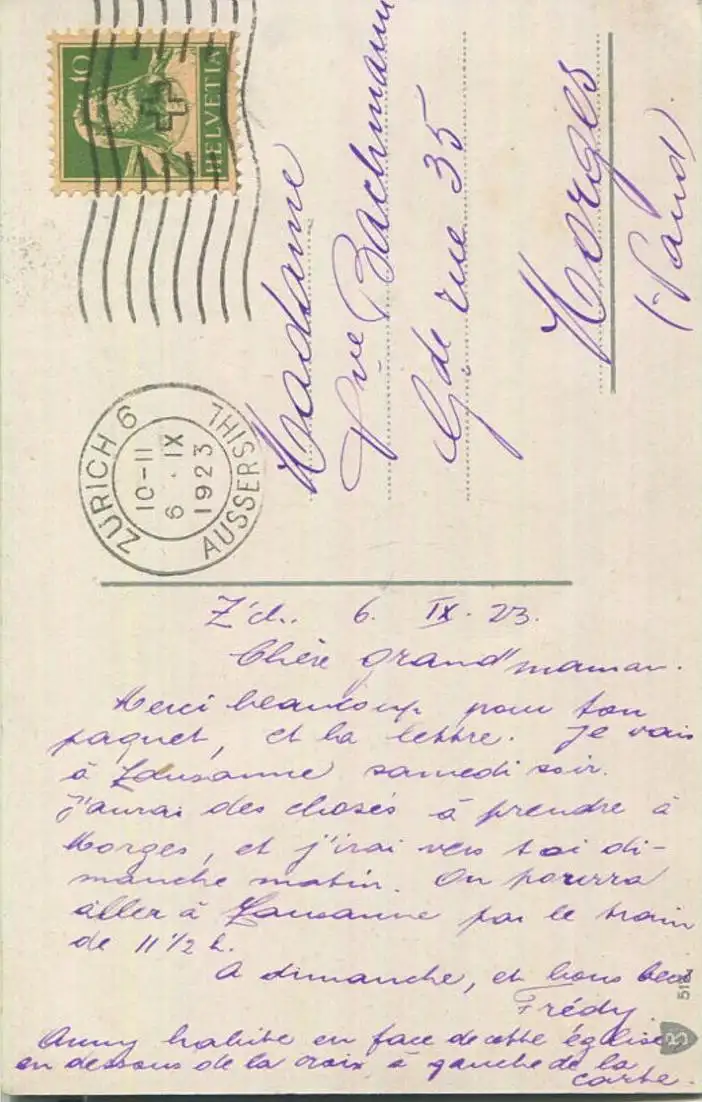 10
HELVETIA
ZÜRICH 6
10-11
6. IX
1923
AUSSERSIHL
Madame
Vve Bachmann
Gde rue 35
Morges
(Vaud).
Z'ch. 6. IX. 23.
Chère grand'maman.
Merci beaucoup pour ton
paquet, et la lettre. Je vais
à Lausanne samedi soir.
J'aurai des choses à prendre à
Morges, et j'irai vers toi di-
manche matin. On pourra
aller à Lausanne par le train
de 11 1/2 h.
A dimanche, et bons
Frédy.
Anny habite en face de cette église
en dessous de la croix, à gauche de la
carte.